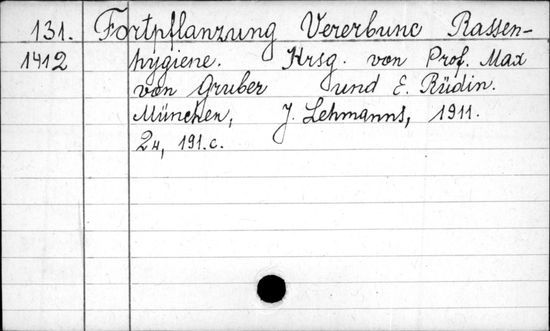 131. Fortpflanzung Vererbunc Rassen-
1412 hygiene. Hrsg. von Prof. Max
von Gruber und E. Rüdin.
München, J. Lehmanns, 1911.
24, 191.c.